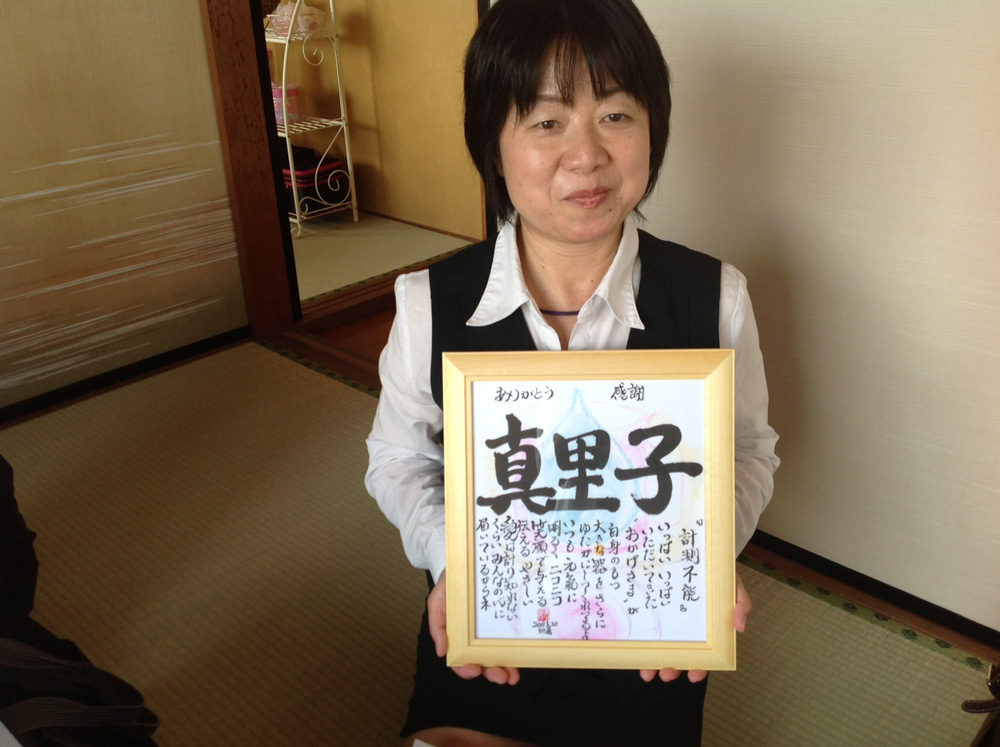 ありがとう 感謝
真里子
"計測不能"
いっぱいいっぱい
いただいてきた
"おかげさま"が
自身のもつ
大きな器をさらに
ゆたかにしてくれてるよ
いつも元気に
明るくニコニコ
笑顔で与える
伝えるやさしい
愛は計り知れない
くらいみんなの心に
届いているから